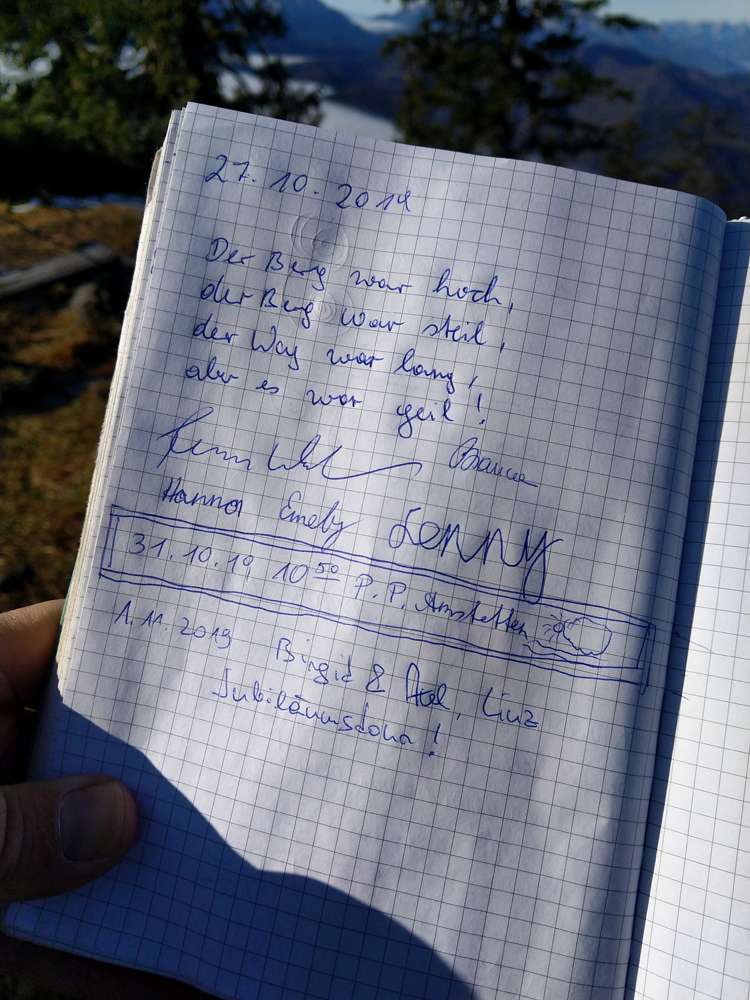 27.10.2019
Der Berg war hoch,
der Berg war steil,
der Weg war lang,
aber es war geil!
Hanna Emely Lenny
31.10.19 10⁵⁰ P.P. Amstetten
1.11.2019 Birgid & Axel, Linz
Jubiläumstour!